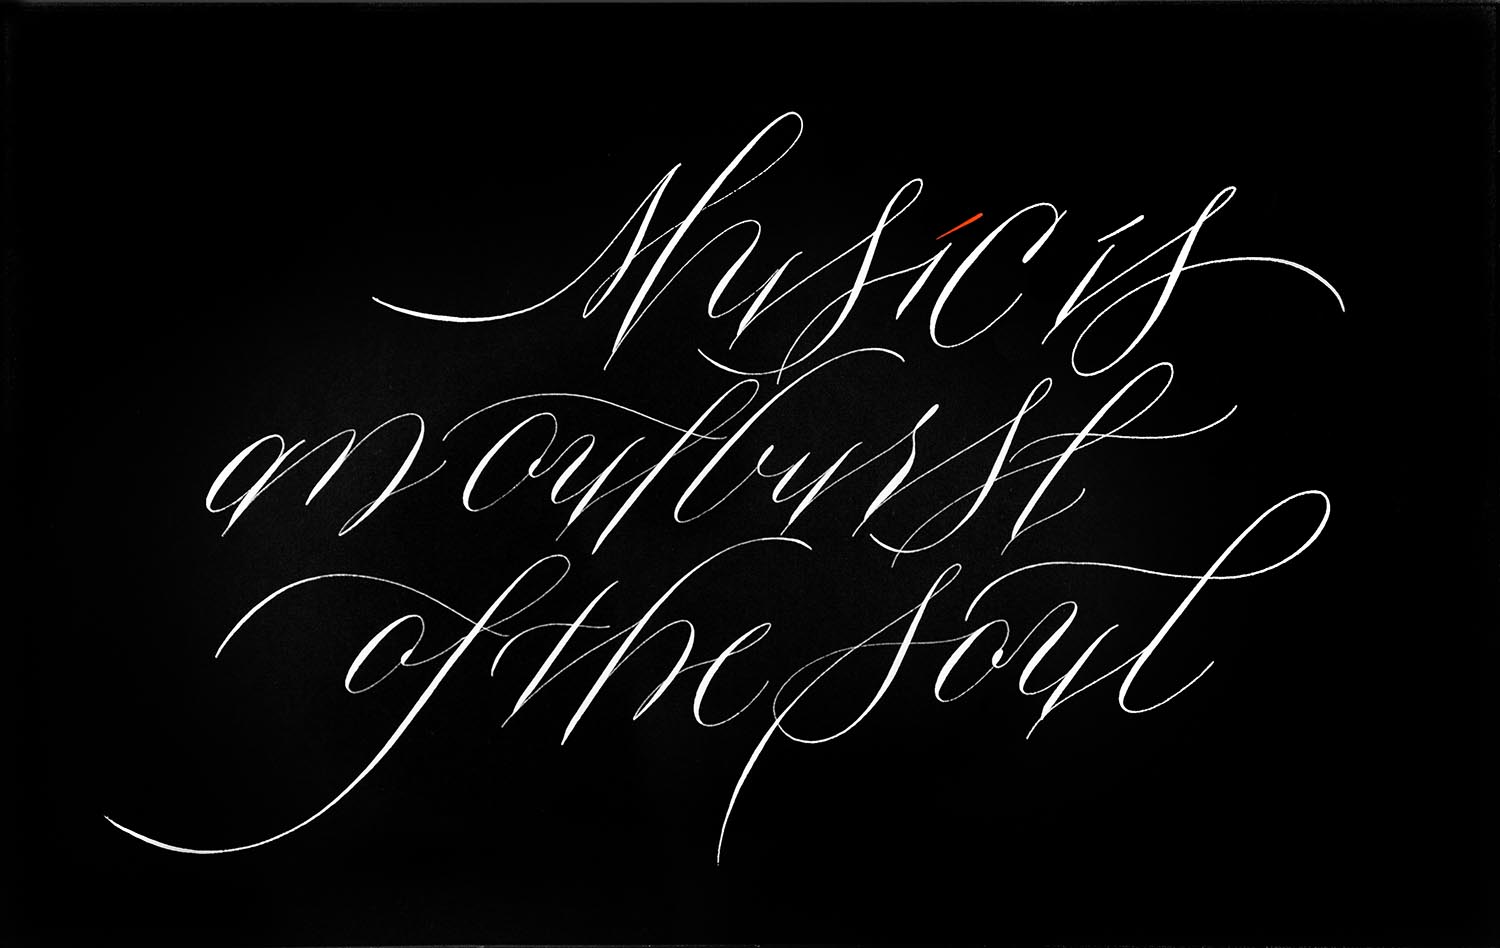 Music is
an outburst
of the soul